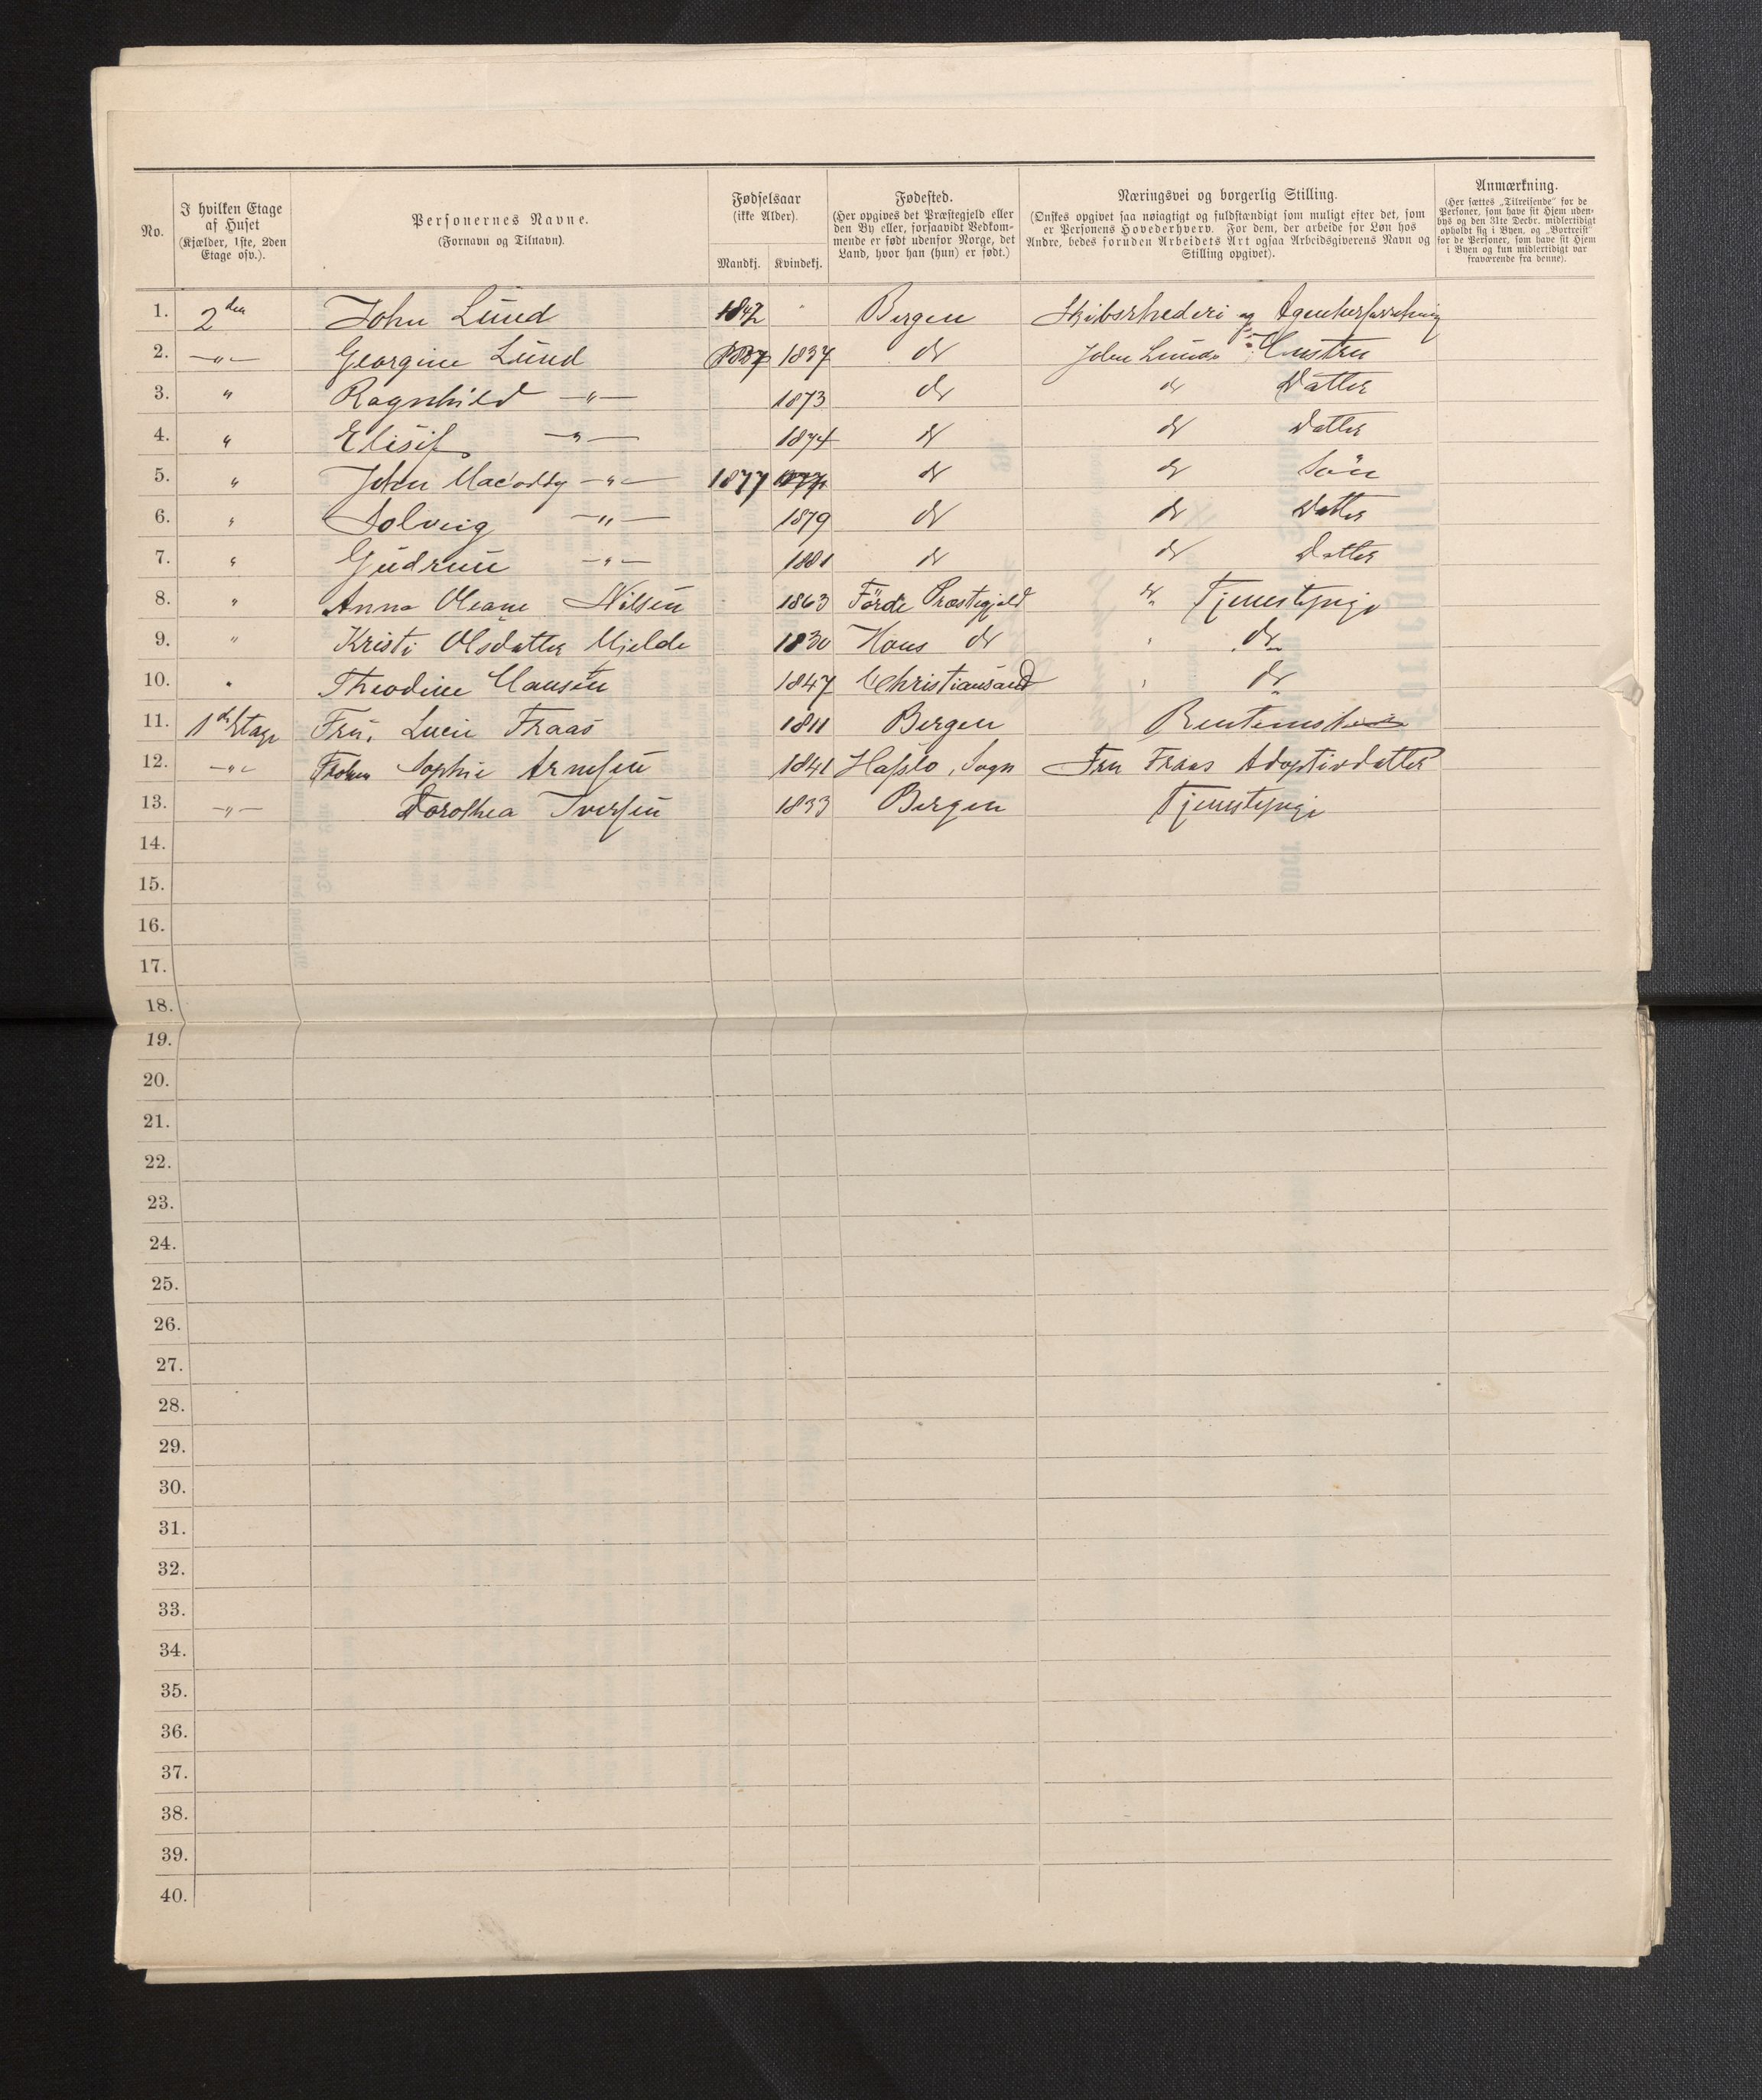 No.
I hvilken Etage af Huset
(Kjælder, 1ste, 2den Etage osv.).
Personernes Navne.
(Fornavn og Tilnavn).
Fødselsaar
(ikke Alder).
Mandkj. Kvindekj.
Fødested.
(Her opgives det Præstegjeld eller
den By eller, forsaavidt Vedkom-
mende er født udenfor Norge, det
Land, hvor han (hun) er født.)
Næringsvei og borgerlig Stilling.
(Ønskes opgivet saa nøiagtigt og fuldstændigt som muligt efter det, som
er Personens Hovederhverv. For dem, der arbeide for Løn hos
Andre, bedes foruden Arbeidets Art ogsaa Arbeidsgiverens Navn og
Stilling opgivet).
Anmærkning.
(Her sættes „Tilreisende" for de
Personer, som have sit Hjem uden-
bys og den 31te Decbr. midlertidigt
opholdt sig i Byen, og „Bortreist"
for de Personer, som have sit Hjem
i Byen og kun midlertidigt var
fraværende fra denne).
1. 2den John Lund 1842 Bergen Skibsrhederi og Agenturforretning
2. —"— Georgine Lund 1837 1837 do John Lunds Hustru
3. " Ragnhild —"— 1873 do do Datter
4. " Elisif —"— 1874 do do Datter
5. " John —"— 1877 do do Sön
6. " Solveig —"— 1879 do do Datter
7. " Gudrun —"— 1881 do do Datter
8. " Anna Oleane Nilsen 1863 Förde Præstegjeld do Tjenestepige
9. " Kristi Olsdatter Mjelde 1830 Hous do " do
10. " Theodine Hansen 1847 Christiansand " do
11. 1ste Etage Fru. Lucie Fraas 1811 Bergen
12. —"— Frøken Sophie Arnesen 1841 Hafslo, Sogn Fru Fraas Adoptivdatter
13. —"— Dorothea Iversen 1833 Bergen Tjenestepige
14.
15.
16.
17.
18.
19.
20.
21.
22.
23.
24.
25.
26.
27.
28.
29.
30.
31.
32.
33.
34.
35.
36.
37.
38.
39.
40.